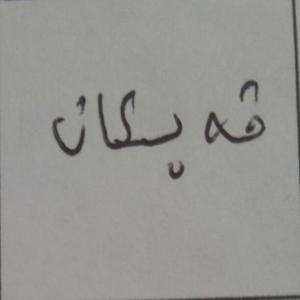 قەیتان